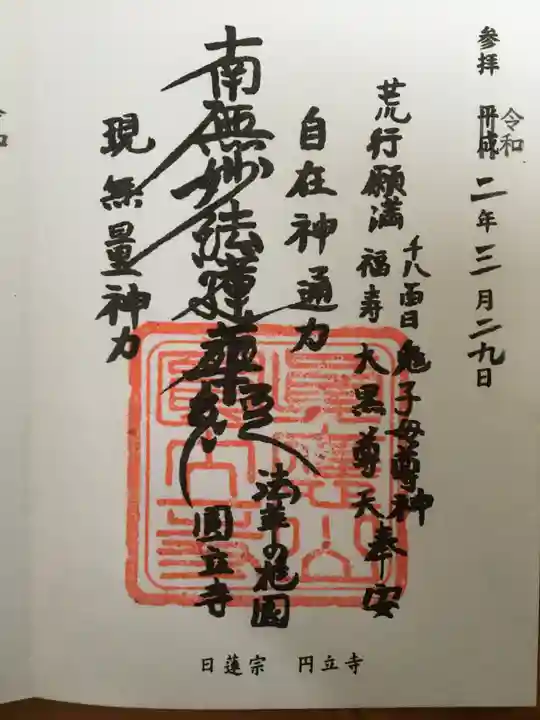 参拝 平成 令和 二年三月二九日
荒行願満 千八百日 鬼子母尊神
福寿 大黒尊天 奉安
自在神通力
南無妙法蓮華経
現無量神力
法華の花園
圓立寺
日蓮宗 円立寺